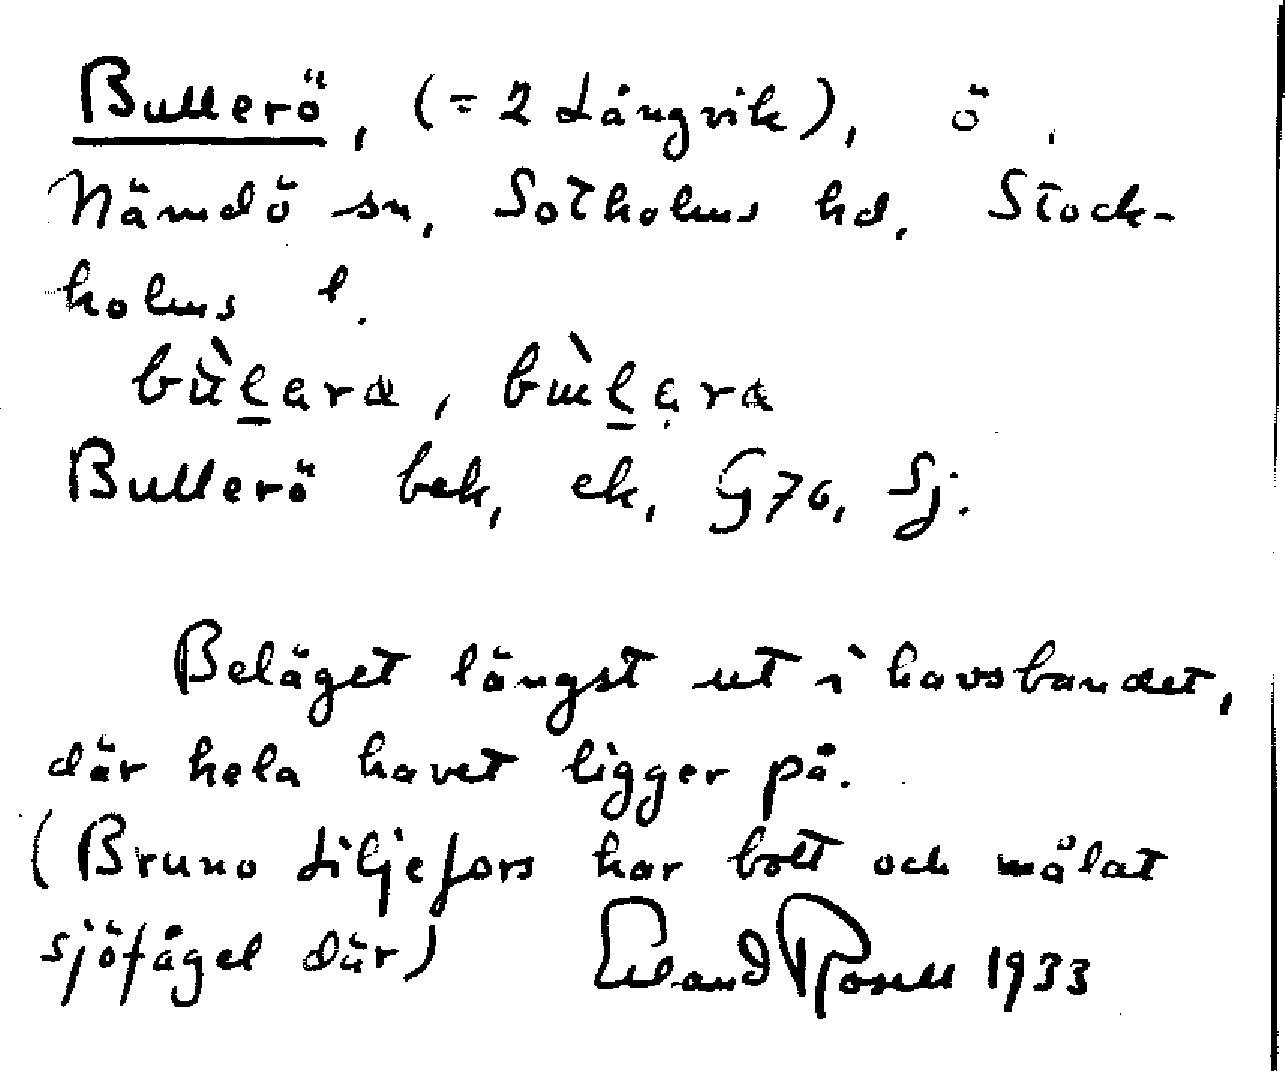 Bullerö, (= 2 Långvik), ö,
Nämdö sn, Sotholms hd, Stock-
holms l.
bùlara, bùlara
Bullerö bek, ek, G70, Sj.
Beläget längst ut i havsbandet,
där hela havet ligger på.
(Bruno Liljefors har bott och målat
sjöfågel där) Erland Rosell 1933